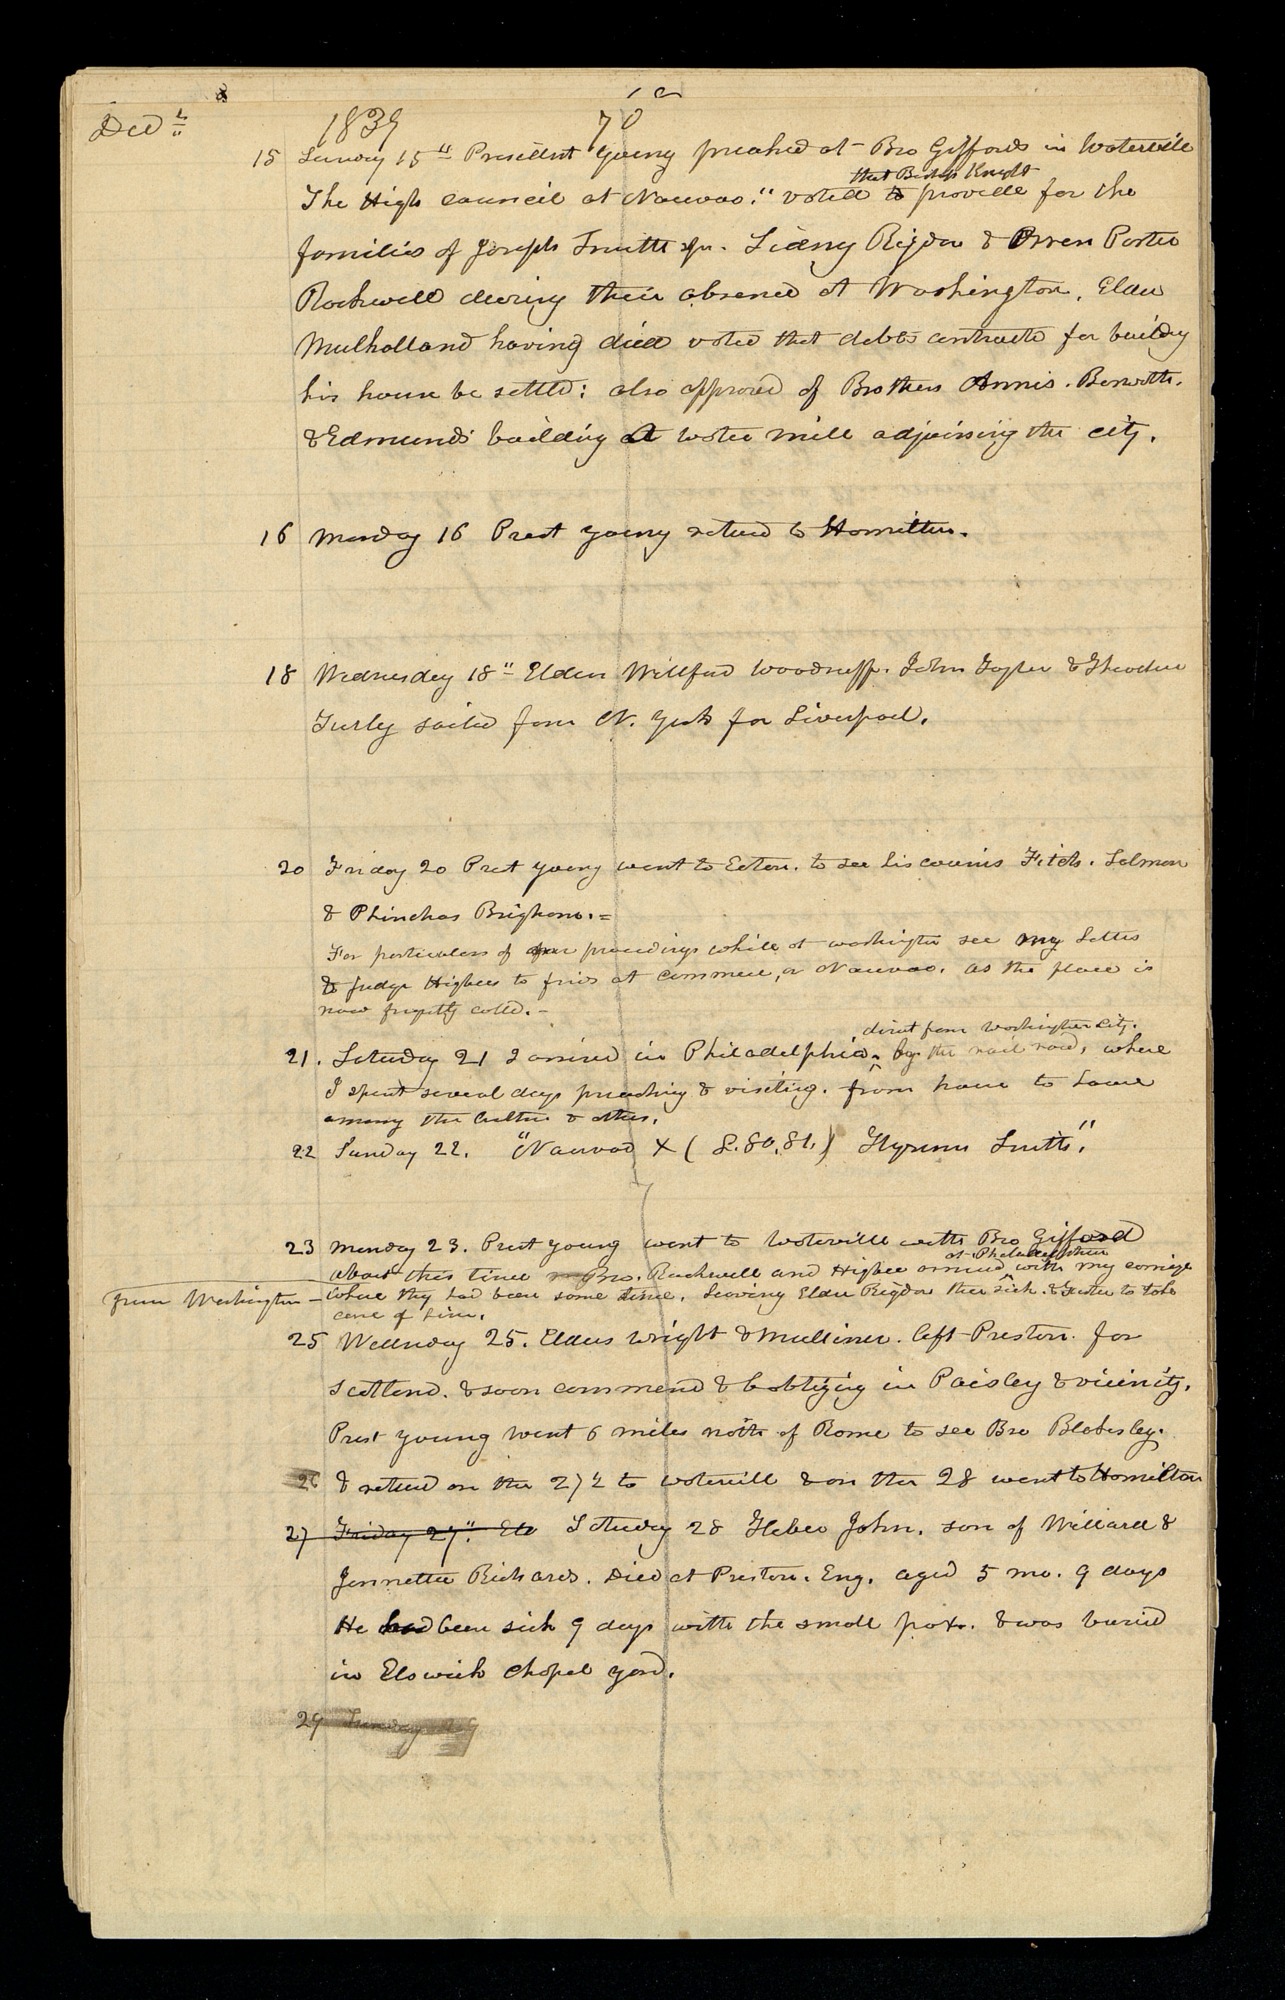 Decr 1839 70
15 Sunday 15" President Young preached at Bro Giffords in Waterville
that Bishop Knight
The High council at Nauvoo." voted to provide for the
families of Joseph Smith Jr. Sidney Rigdon & Orren Porter
Rockwell during their absence at Washington, Elder
Mulholland having died voted that debts contracted for building
his house be settled: also approved of Brothers Annis. Bosworth.
& Edmunds building a water mill adjoining the city.
16 Monday 16 Prest Young returned to Hamilton.
18 Wednesday 18" Elders Willford Woodruff. John Taylor & Theodore
Turley sailed from N. York for Liverpool.
20 Friday 20 Prest Young went to Eaton. to see his cousins Fitch. Salmon
& Phinehas Brigham. =
For particulars of our proceedings while at washington see my Letters
& Judge Higbees to friends at Commerce, or Nauvoo. as the place is
now frequently called. -
direct from Washington City.
21. Saturday 21 I arrived in Philadelphia ^ by the rail road, where
I spent several days preaching & visiting. from house to house
among the brethren & others.
22 Sunday 22. "Nauvoo X (P. 80, 81.) Hyrum Smith."
23 Monday 23. Prest Young went to Waterville with Bro Gifford
at Philadelphia
about this time Bro. Rockwell and Higbee arrived ^ with my carriage
from Washington – where they had been some time, leaving Elder Rigdon there sick. & Foster to take
care of him.
25 Wednesday 25. Elders Wright & Mulliner. left Preston. for
Scotland. & soon commenced babtizing in Paisley & vicinity.
Prest Young went 6 miles north of Rome to see Bro Blakesley.
26 & returned on the 27" to watervill & on the 28 went to Hamilton
27 Friday 27". Saturday 28 Heber John. son of Willard &
Jennetta Richards. Died at Preston. Eng. aged 5 mo. 9 days
He had been sick 9 days with the small pox. & was buried
in Elswick Chapel yard.
29 Sunday 29